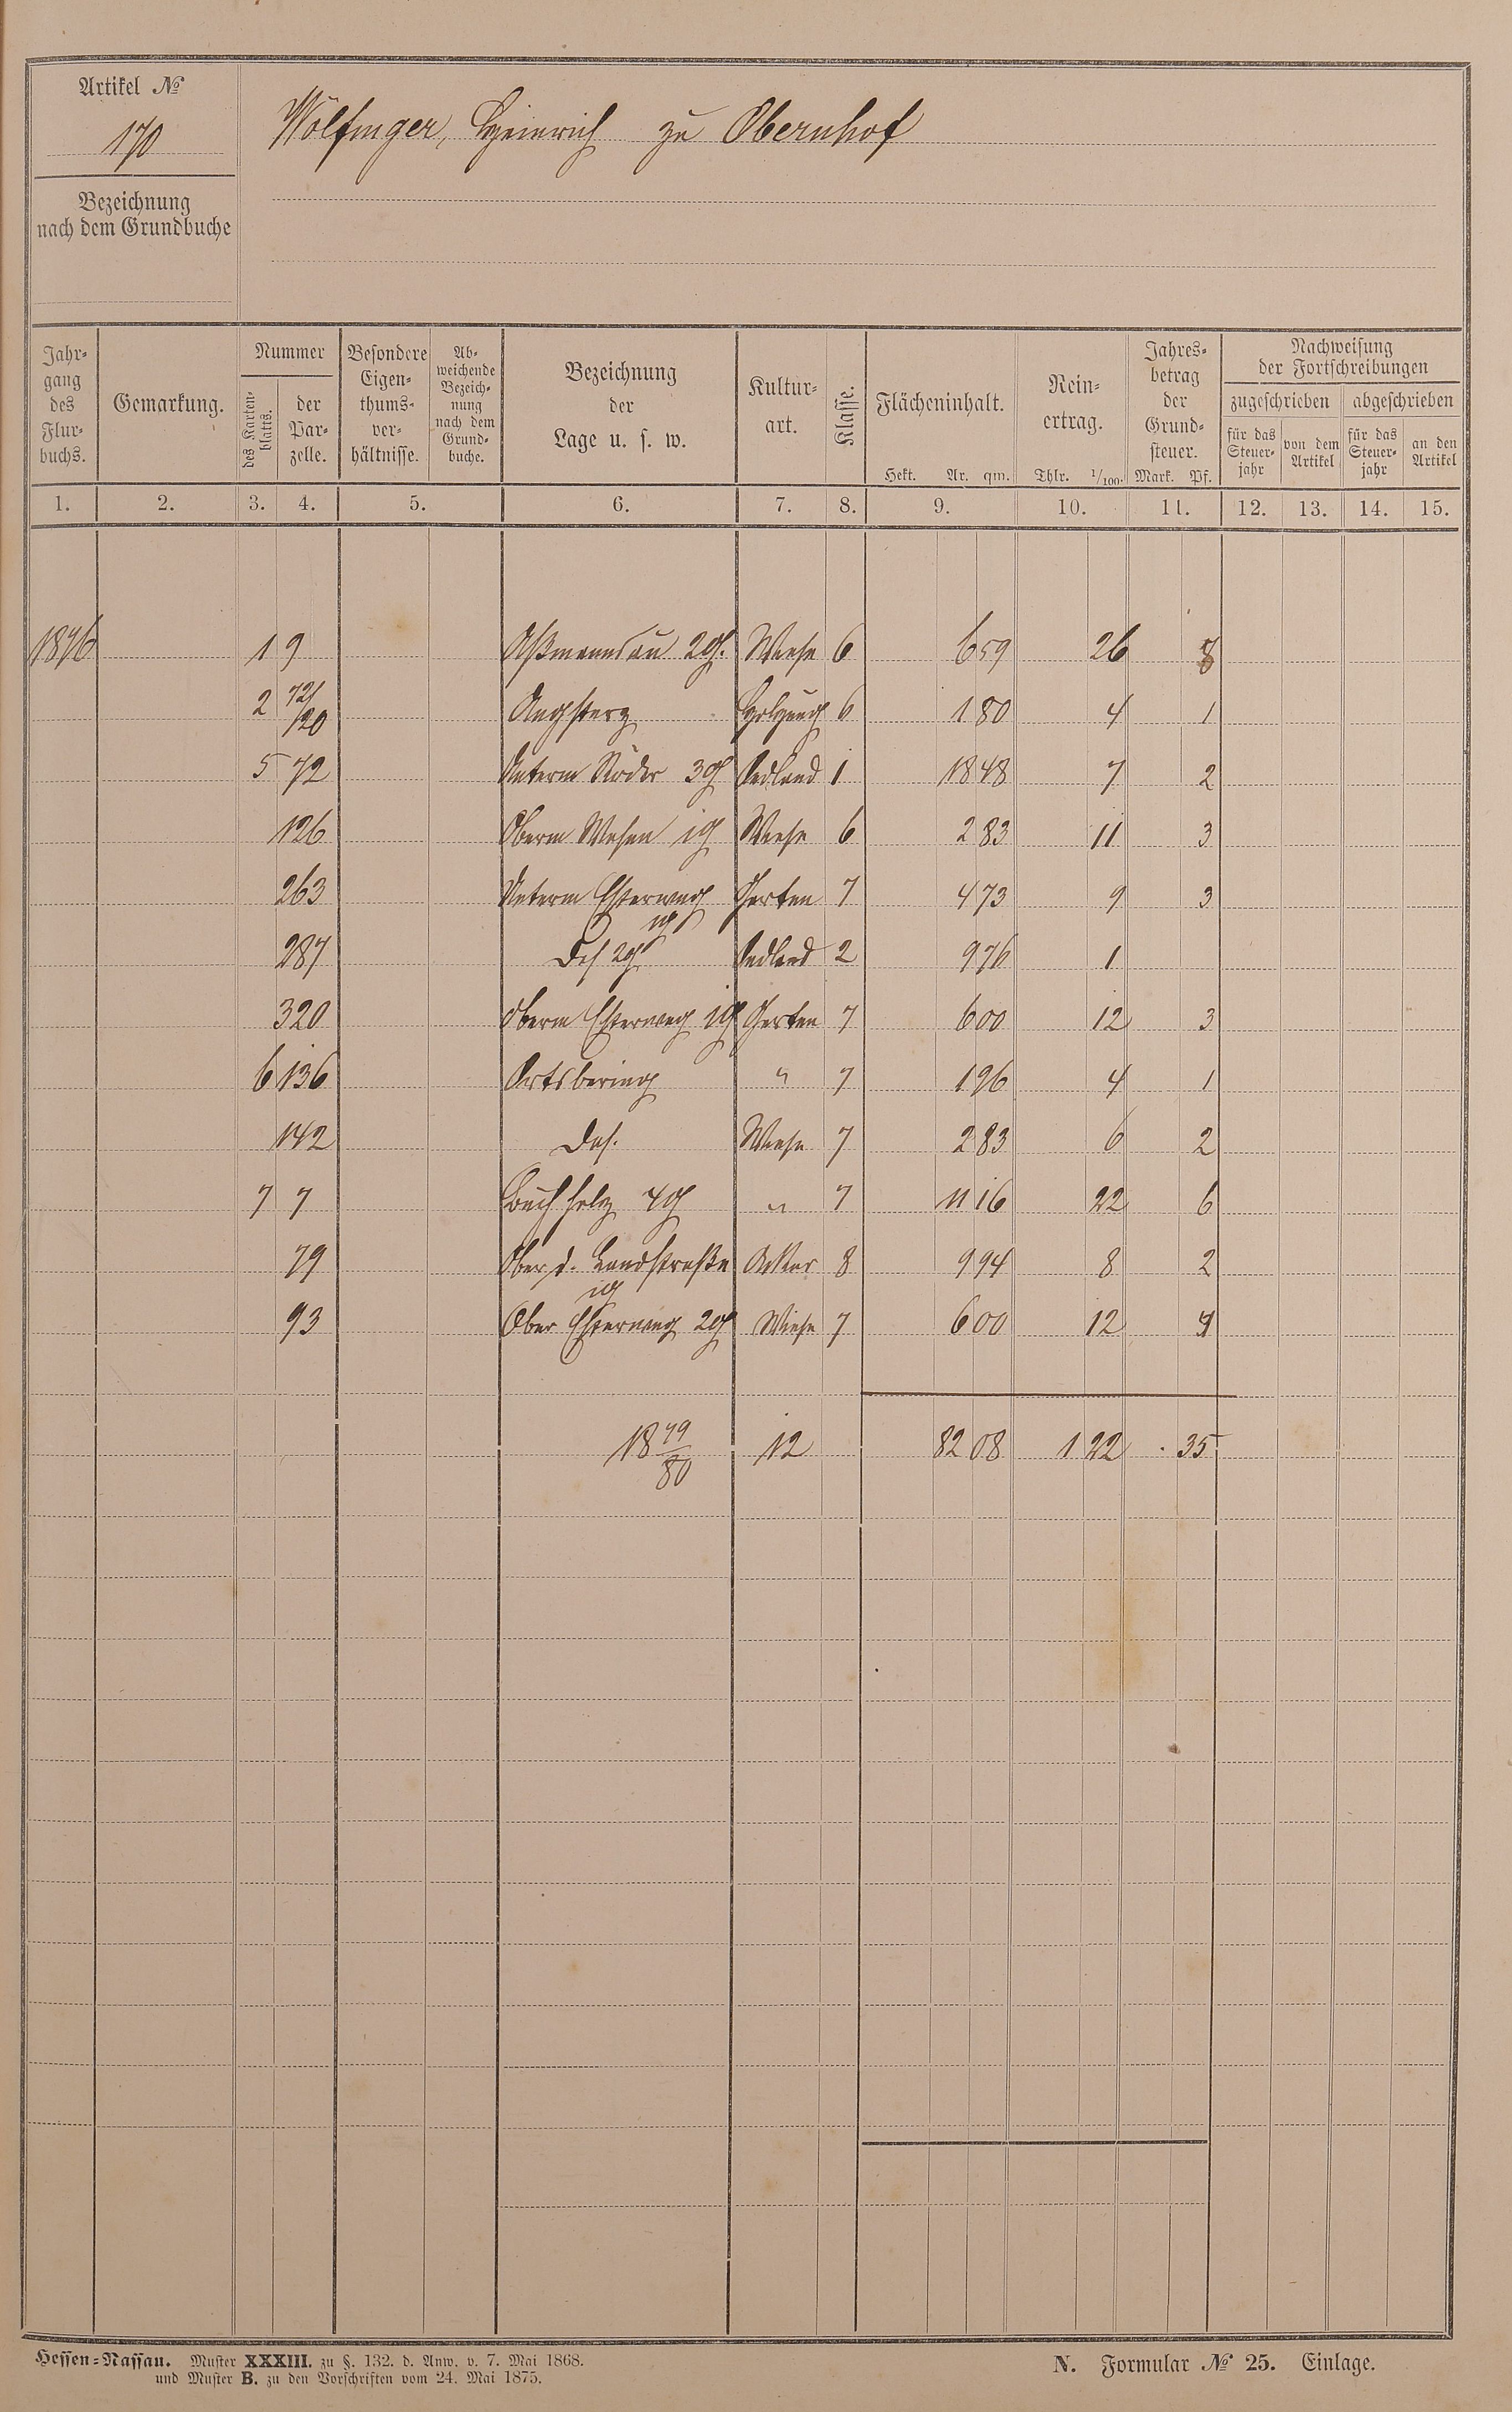 Artikel №
170
Wolfinger, Heinrich zu Obernhof
Bezeichnung
nach dem Grundbuche
Jahr-
gang
des
Flur-
buchs.
Gemarkung.
Nummer
des Karten-
blatts.
der
Par-
zelle.
Besondere
Eigen-
thums-
ver-
hältnisse.
Ab-
weichende
Bezeich-
nung
nach dem
Grund-
buche.
Bezeichnung
der
Lage u. s. w.
Kultur-
art.
Klasse.
Flächeninhalt.
Hekt. Ar. qm.
Rein-
ertrag.
Thlr. 1/100.
Jahres-
betrag
der
Grund-
steuer.
Mark. Pf.
Nachweisung
der Fortschreibungen
zugeschrieben abgeschrieben
für das
Steuer-
jahr
von dem
Artikel
für das
Steuer-
jahr
an den
Artikel
1. 2. 3. 4. 5. 6. 7. 8. 9. 10. 11. 12. 13. 14. 15.
1876 1 9 Aßmannsau 2g. Wiese 6 6 59 26
2 72/20 6 1 80 4 1
5 72 Unterm Röder 3g Oedland 1 18 48 7 2
126 Oberm Wesen 1g Wiese 6 2 83 11 3
263 Unterm Garten 7 4 73 9 3
1g
287 Das 2g Oedland 2 9 76 1
320 Oberm 1g Garten 7 6 00 12 3
6 136 Ortsbering " 7 1 96 4 1
142 Das. Wiese 7 2 83 6 2
7 7 Buchholz 4g " 7 11 16 22 6
79 Ober d. Landstraße Acker 8 9 94 8 2
1g
93 Ober 2g Wiese 7 6 00 12
18 79/80 12 82 08 1 22 . 35
Hessen-Nassau. Muster XXXIII. zu §. 132. d. Anw. v. 7. Mai 1868.
und Muster B. zu den Vorschriften vom 24. Mai 1875.
N. Formular № 25. Einlage.